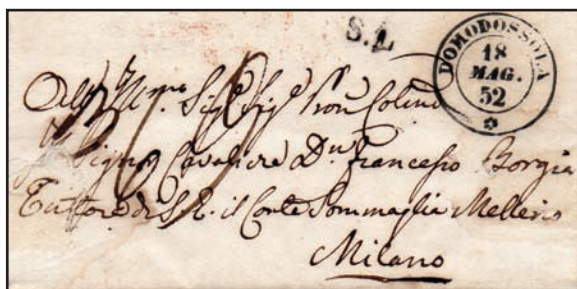 S.L
DOMODOSSOLA
18
MAG.
52
All' Ill.mo Sig.e Sig.e Pron Colmo
Signor Cavaliere Dn. Francesco Borgia
Tuttore di S.E. il Conte Sommaglia Mellerio
Milano